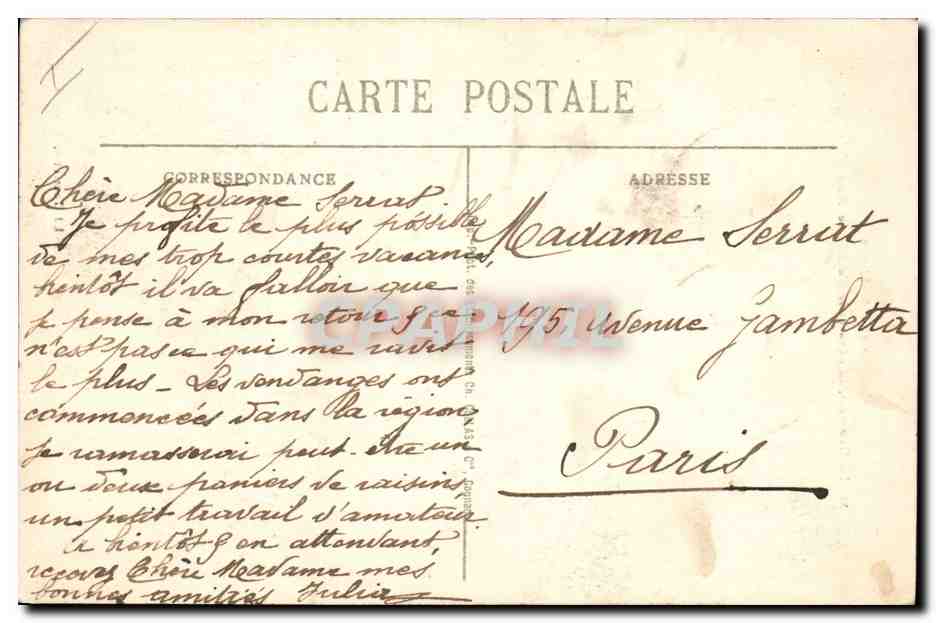 CARTE POSTALE
CORRESPONDANCE
ADRESSE
Chère Madame Serrat
Je profite le plus possible
de mes trop courtes vacances,
bientôt il va falloir que
je pense à mon retour & ce
n'est pas ce qui me ravit
le plus - Les vendanges ont
commencées dans la région
je ramasserai peut-être un
ou deux paniers de raisins
un petit travail d'amateur.
a bientôt & en attendant,
recevez Chère Madame mes
bonnes amitiés Julia
Madame Serrat
195 Avenue Gambetta
Paris
CPAPHIL